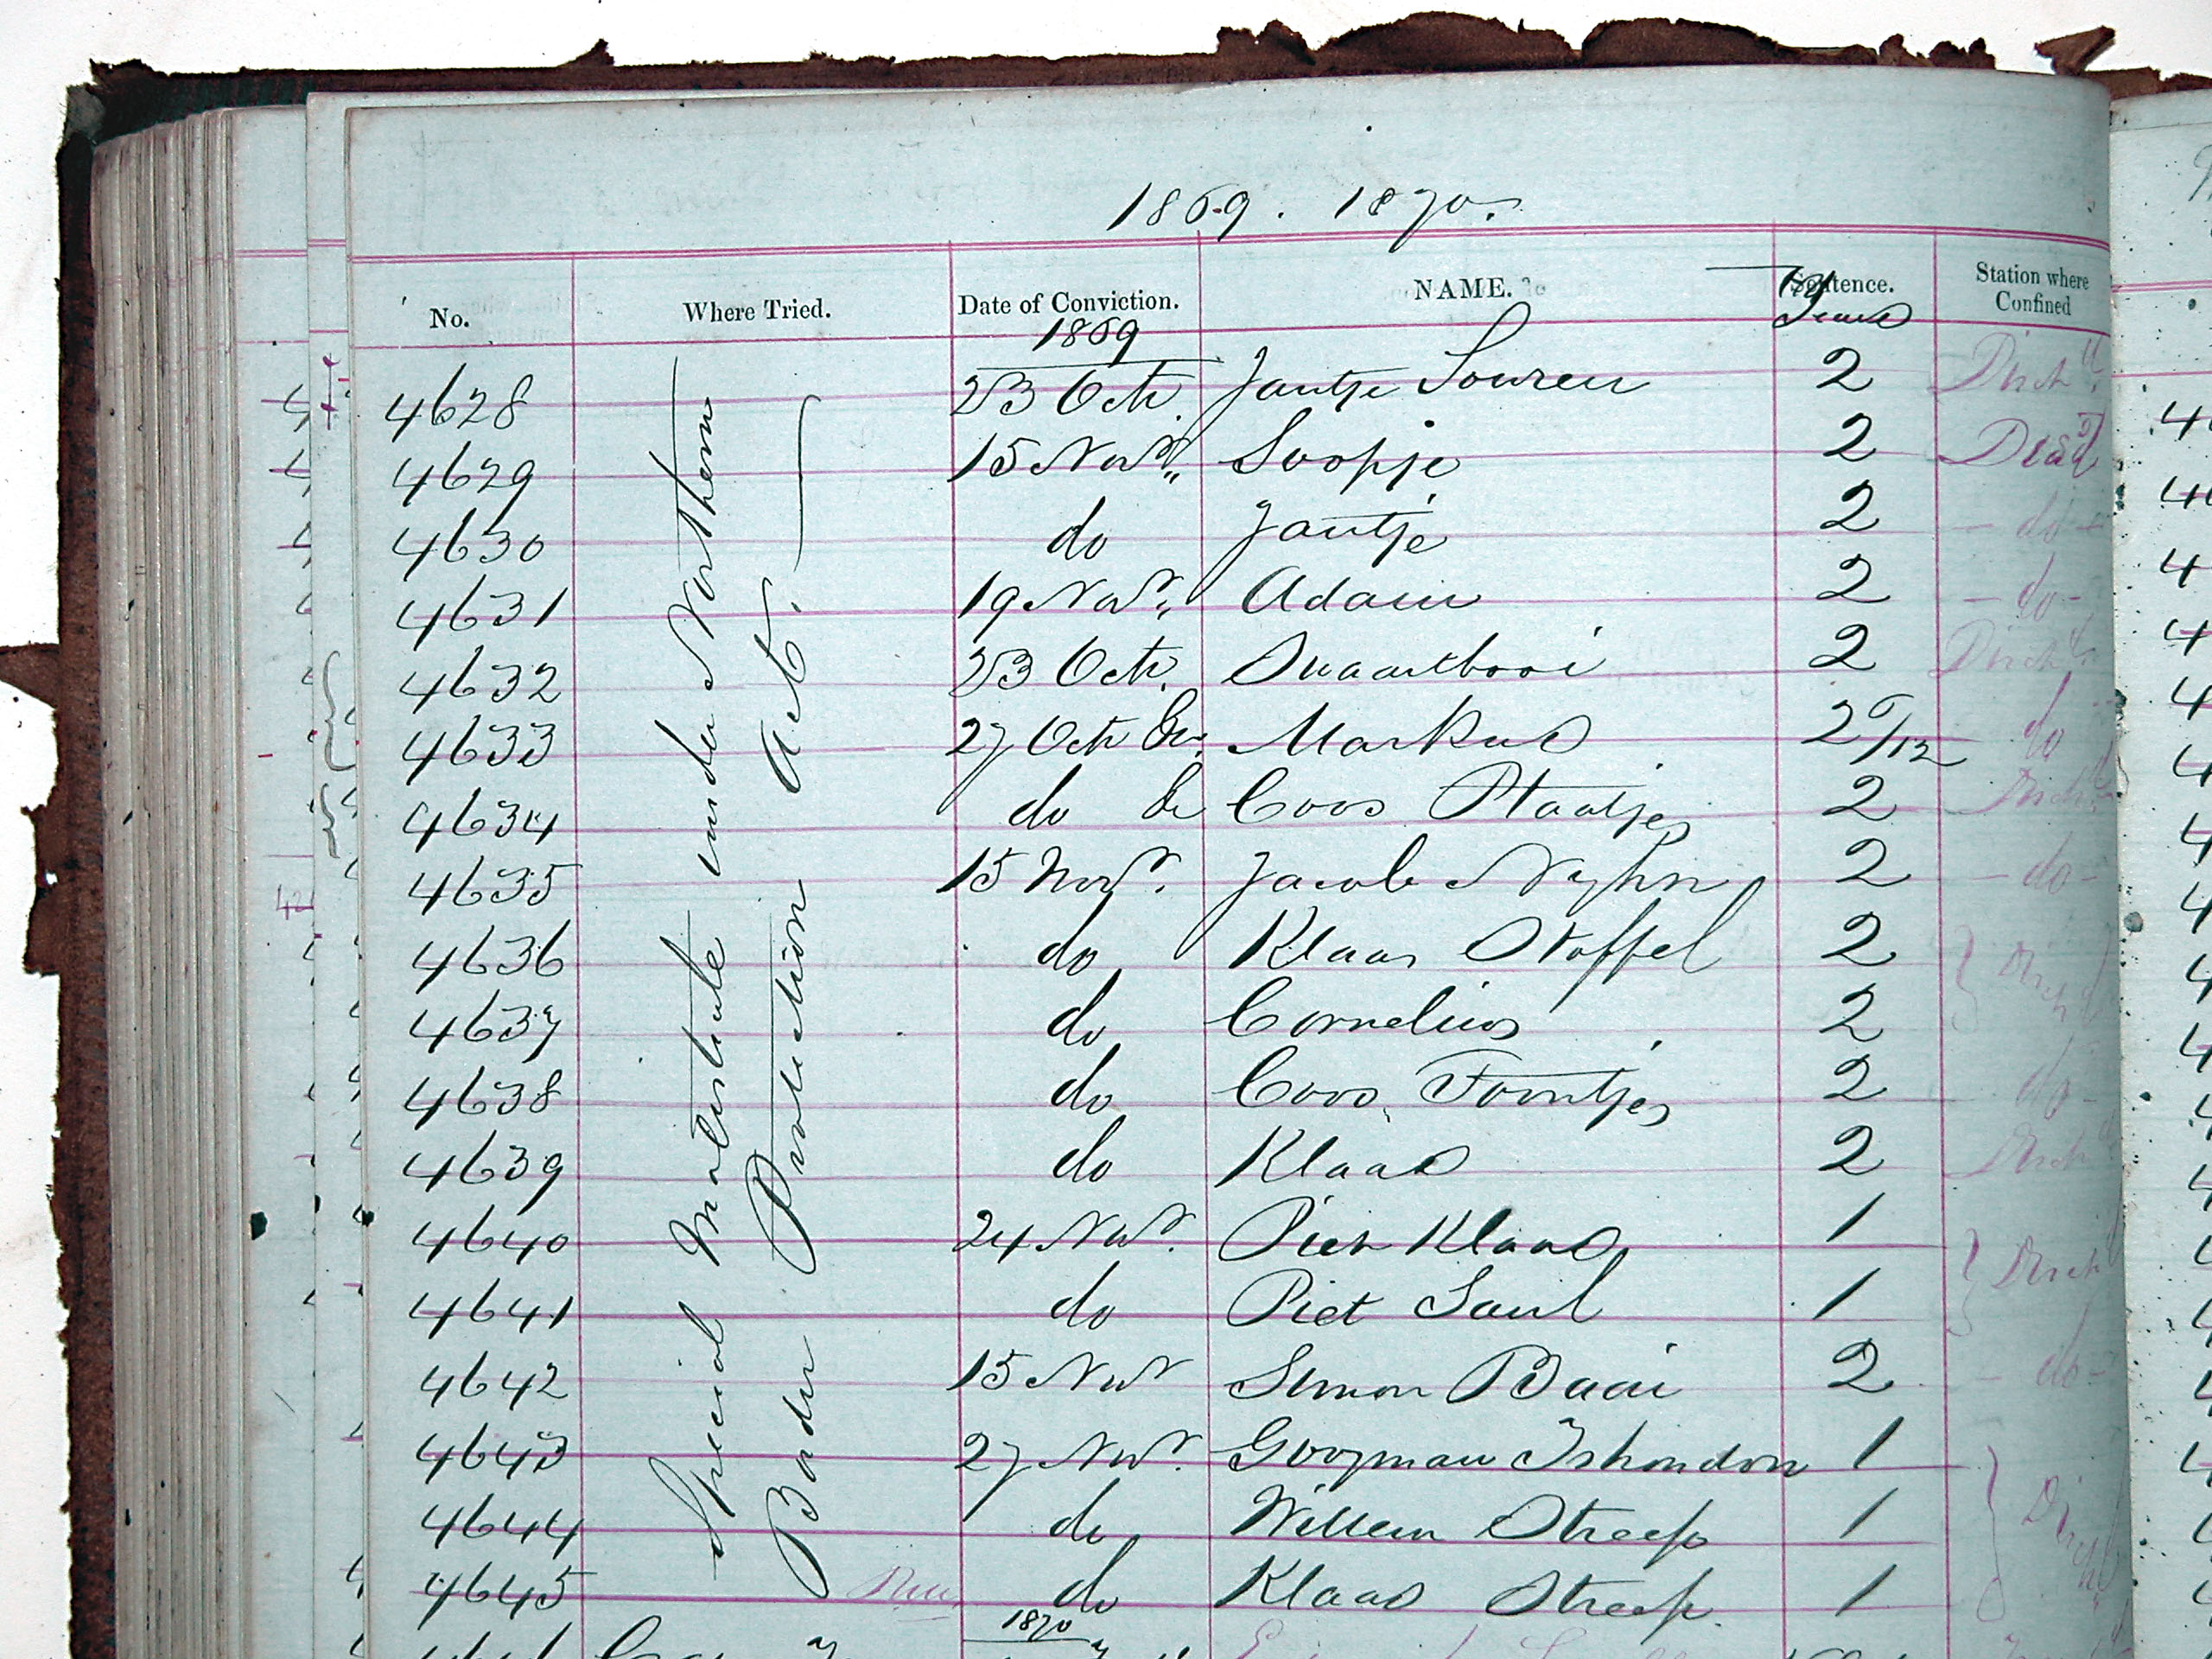 1869. 1870.
No. Where Tried. Date of Conviction. NAME. Sentence. Station where Confined
1869
Special Magistrate under Northern
Border Protection Act.
4628 23 Oct. Jantje 2 Disch
4629 15 Novr. Soopje 2 Dead
4630 do Jantje 2 - do -
4631 19 Novr. Adam 2 - do -
4632 23 Oct. Swaartbooi 2 Disch
4633 27 Oct Markus 2 /12 do
4634 do Coos Plaatjes 2 Disch
4635 15 Novr. Jacob 2 - do -
4636 do Klaas Stoffel 2 Disch
4637 do Cornelius 2
4638 do Coos Foortjes 2 do -
4639 do Klaas 2 Disch
4640 24 Novr. Piet Klaas 1 Disch
4641 do Piet Saul 1
4642 15 Novr Simon Baai 2 - do -
4643 27 Novr. 1 Disch
4644 do Willem Streep 1
4645 do Klaas Streep 1
1870